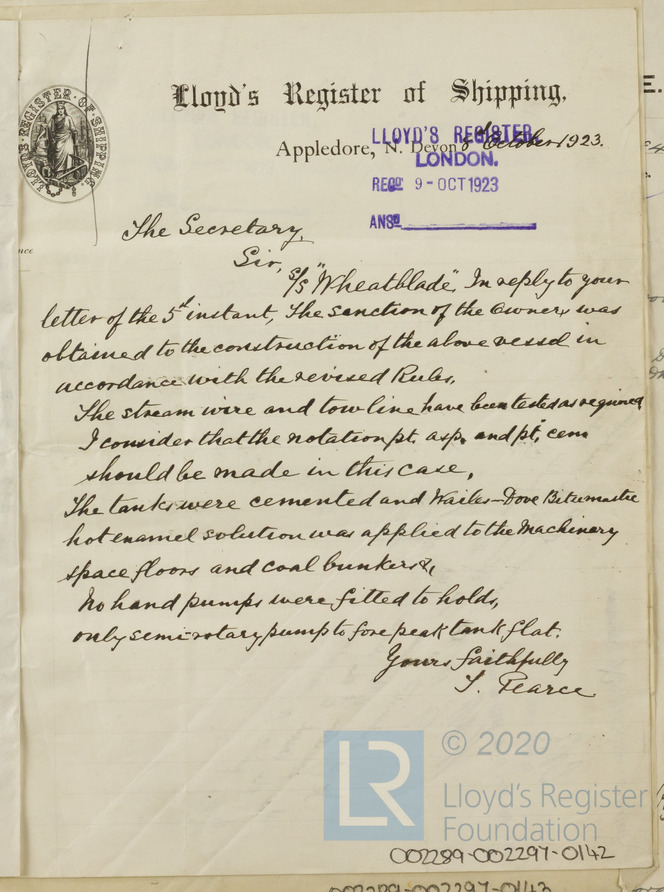 LLOYD'S REGISTER OF SHIPPING
Lloyd's Register of Shipping,
Appledore, N. Devon 8th October 1923.
LLOYD'S REGISTER,
LONDON.
RECD 9-OCT 1923
ANSD
The Secretary,
Sir,
s/s "Wheatblade", In reply to your
letter of the 5th instant, The sanction of the Owners was
obtained to the construction of the above vessel in
accordance with the revised Rules,
The stream wire and towline have been tested as required
I consider that the notation pt. asp. and pt. cem
should be made in this case,
The tanks were cemented and Wailes-Dove Bitumastic
hot enamel solution was applied to the Machinery
space floors and coal bunkers &,
No hand pumps were fitted to holds,
only semi-rotary pump to fore peak tank flat.
Yours faithfully
T. Pearce
LR
© 2020
Lloyd's Register
Foundation
002289-002297-0142
002289-002297-0143